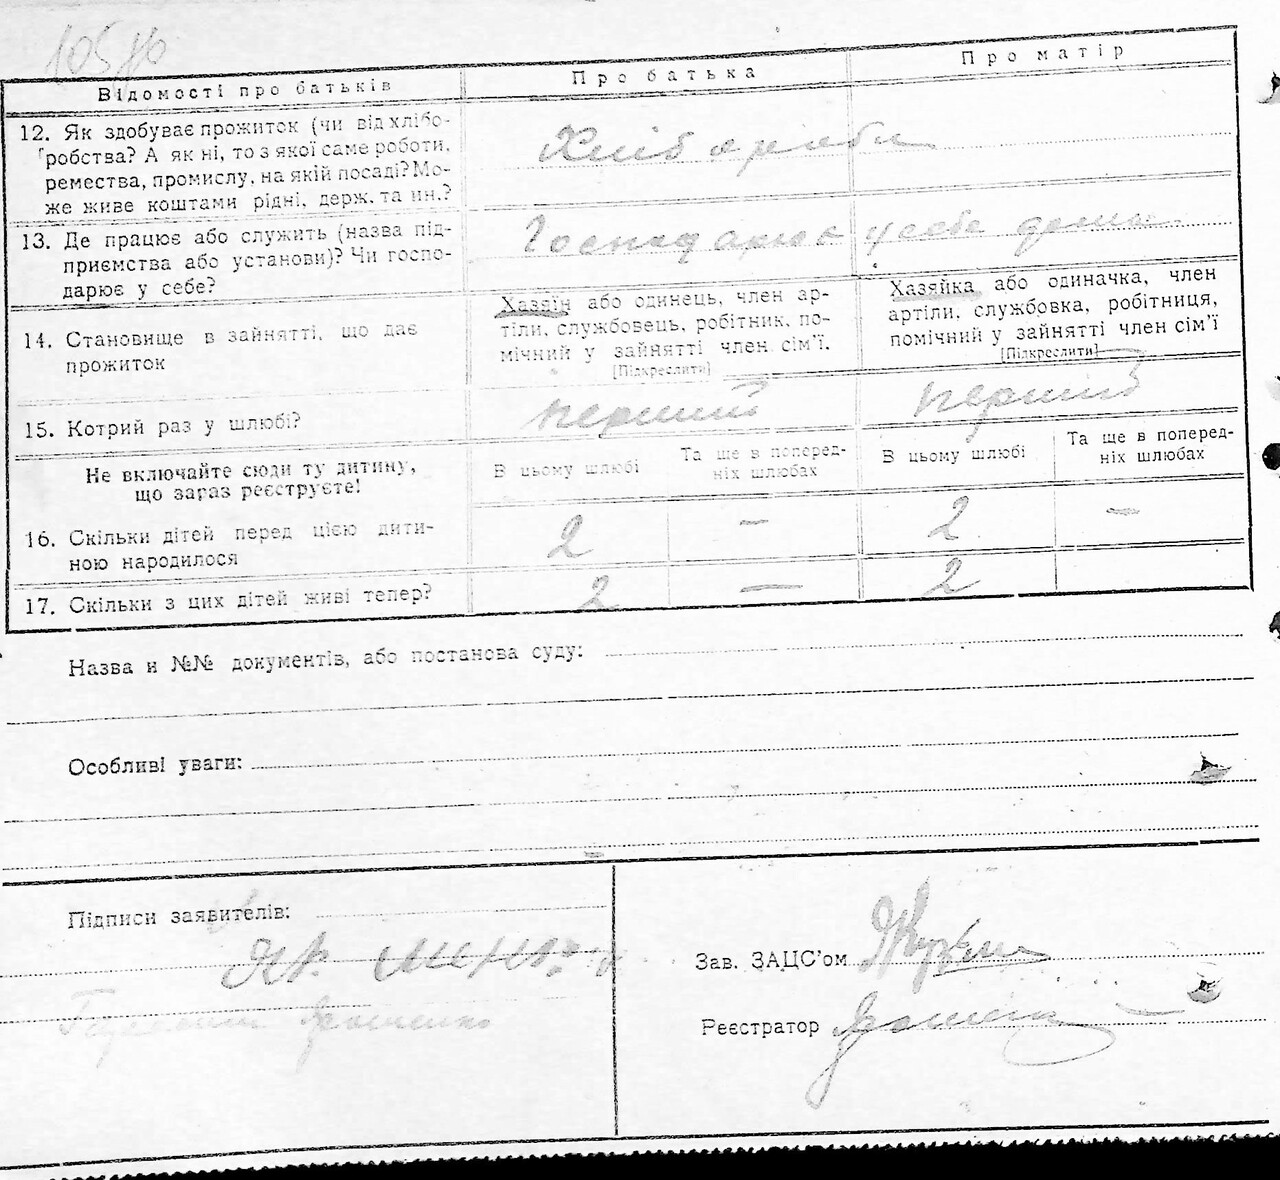 Відомості про батьків
Про батька
Про матір
12. Як здобуває прожиток (чи від хлібо-
робства? А як ні, то з якої саме роботи,
ремества, промислу, на якій посаді? Мо-
же живе коштами рідні, держ. та ин.?
Хліборобы
13. Де працює або служить (назва під-
приємства або установи)? Чи госпо-
дарює у себе?
Господарює у себе дома
14. Становище в зайнятті, що дає
прожиток
Хазяїн або одинець, член ар-
тіли, службовець, робітник, по-
мічний у зайнятті член сім'ї.
[Підкреслити]
Хазяйка або одиначка, член
артіли, службовка, робітниця,
помічний у зайнятті член сім'ї
[Підкреслити]
15. Котрий раз у шлюбі?
перший
перший
Не включайте сюди ту дитину,
що зараз реєструєте!
В цьому шлюбі
Та ще в поперед-
ніх шлюбах
В цьому шлюбі
Та ще в поперед-
ніх шлюбах
16. Скільки дітей перед цією дити-
ною народилося
2 — 2 —
17. Скільки з цих дітей живі тепер?
2 — 2
Назва и №№ документів, або постанова суду:
Особливі уваги:
Підписи заявителів:
Зав. ЗАЦС'ом
Реєстратор